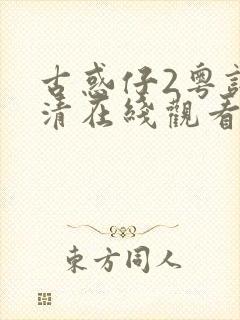 古惑仔2粵語
清在綫觀看
東方同人